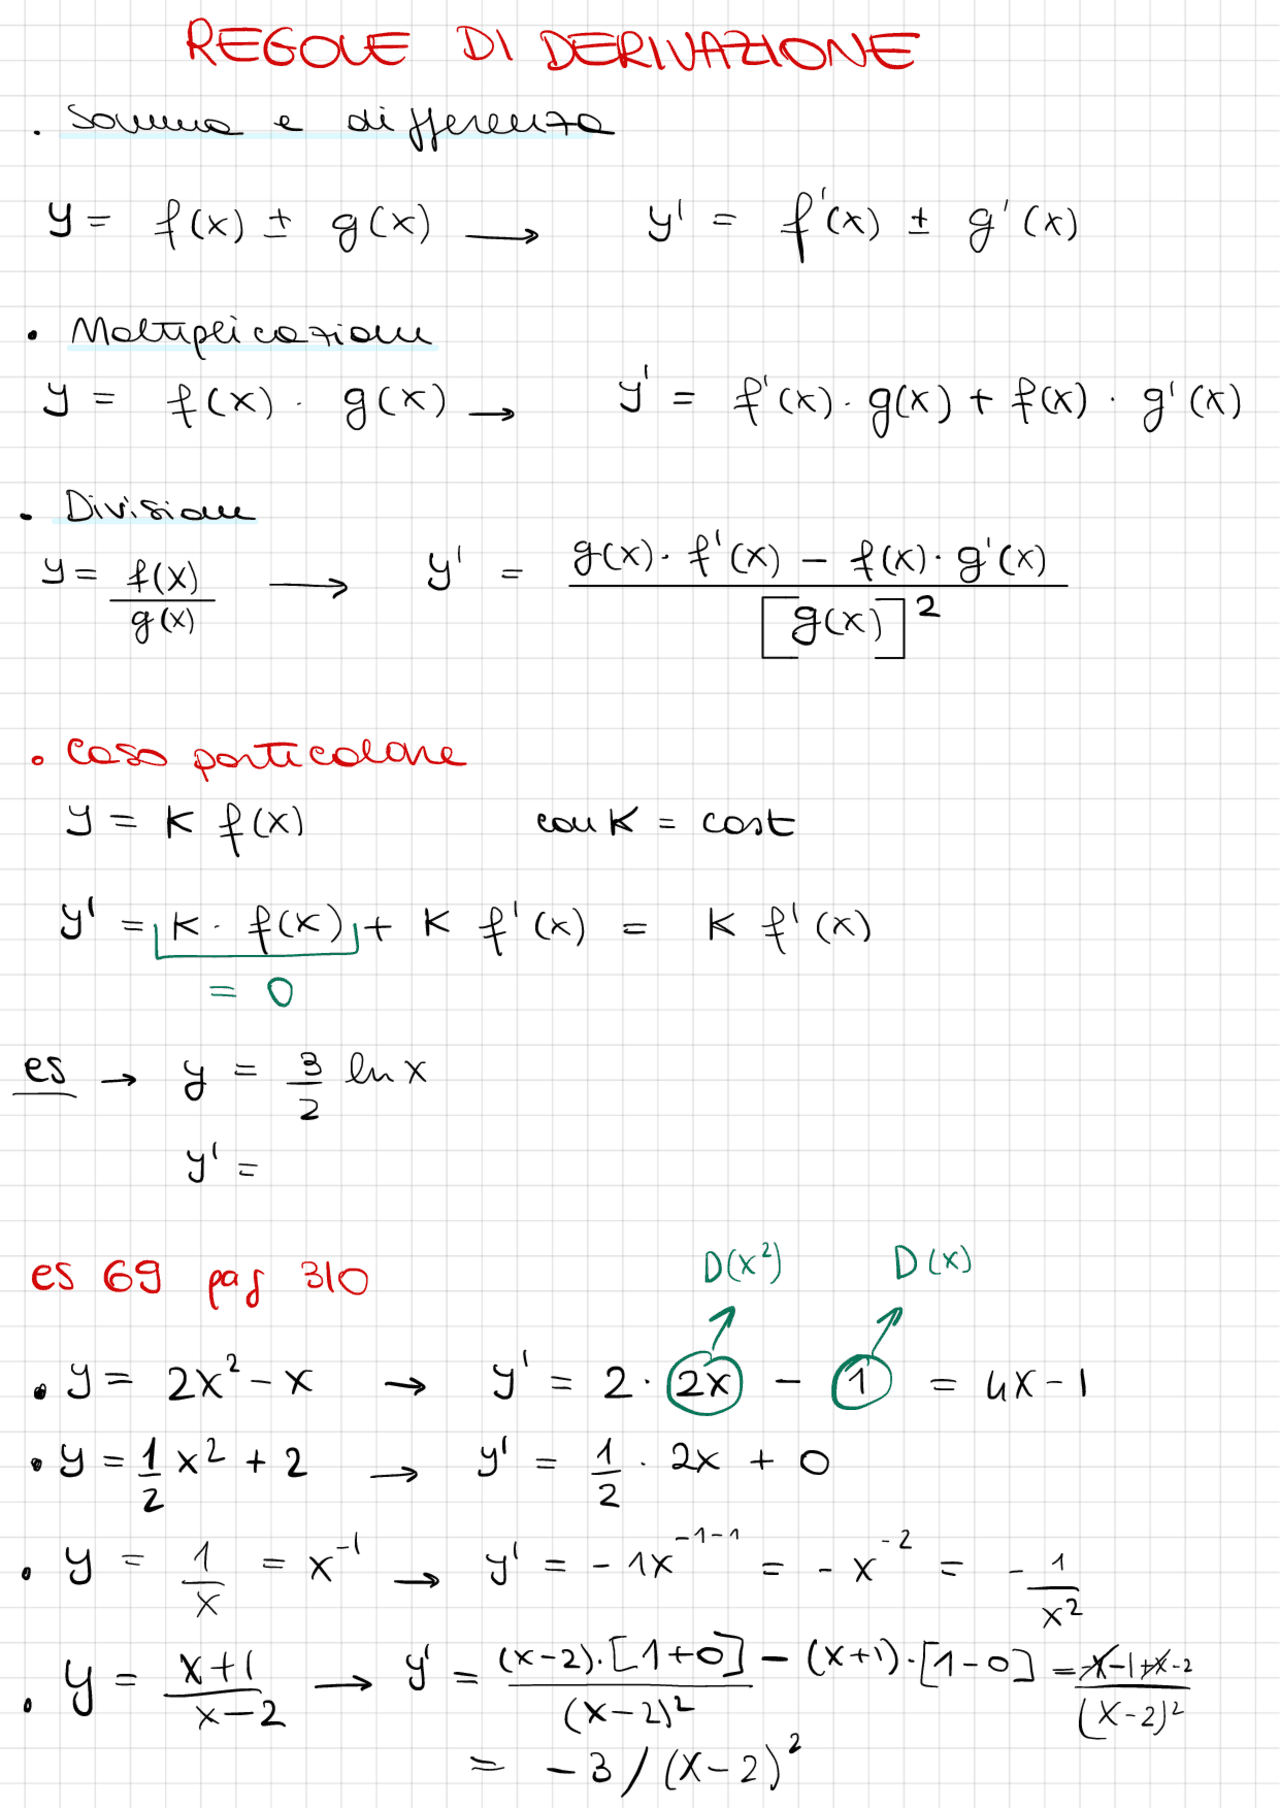 REGOLE DI DERIVAZIONE
. Somma e differenza
y = f(x) ± g(x) → y' = f'(x) ± g'(x)
• Moltiplicazione
y = f(x) · g(x) → y' = f'(x) · g(x) + f(x) · g'(x)
• Divisione
y = f(x)/g(x) → y' = g(x) · f'(x) − f(x) · g'(x) / [g(x)]²
• caso particolare
y = K f(x) con K = cost
y' = K · f(x) + K f'(x) = K f'(x)
= 0
es → y = 3/2 ln x
y' =
es 69 pag 310
D(x²) D(x)
• y = 2x² − x → y' = 2 · 2x − 1 = 4x − 1
• y = 1/2 x² + 2 → y' = 1/2 · 2x + 0
• y = 1/x = x⁻¹ → y' = − 1x⁻¹⁻¹ = − x⁻² = − 1/x²
• y = x+1/x−2 → y' = (x−2)·[1+0] − (x+1)·[1−0] / (x−2)² = −x−1+x−2 / (x−2)²
= −3/(x−2)²